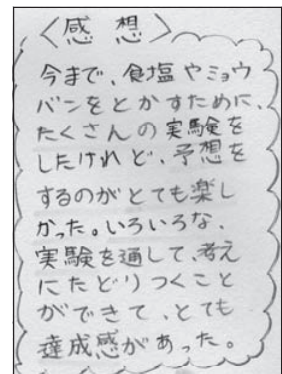 〈感想〉
今まで、食塩やミョウ
バンをとかすために、
たくさんの実験を
したけれど、予想を
するのがとても楽し
かった。いろいろな、
実験を通して、考え
にたどりつくこと
ができて、とても
達成感があった。